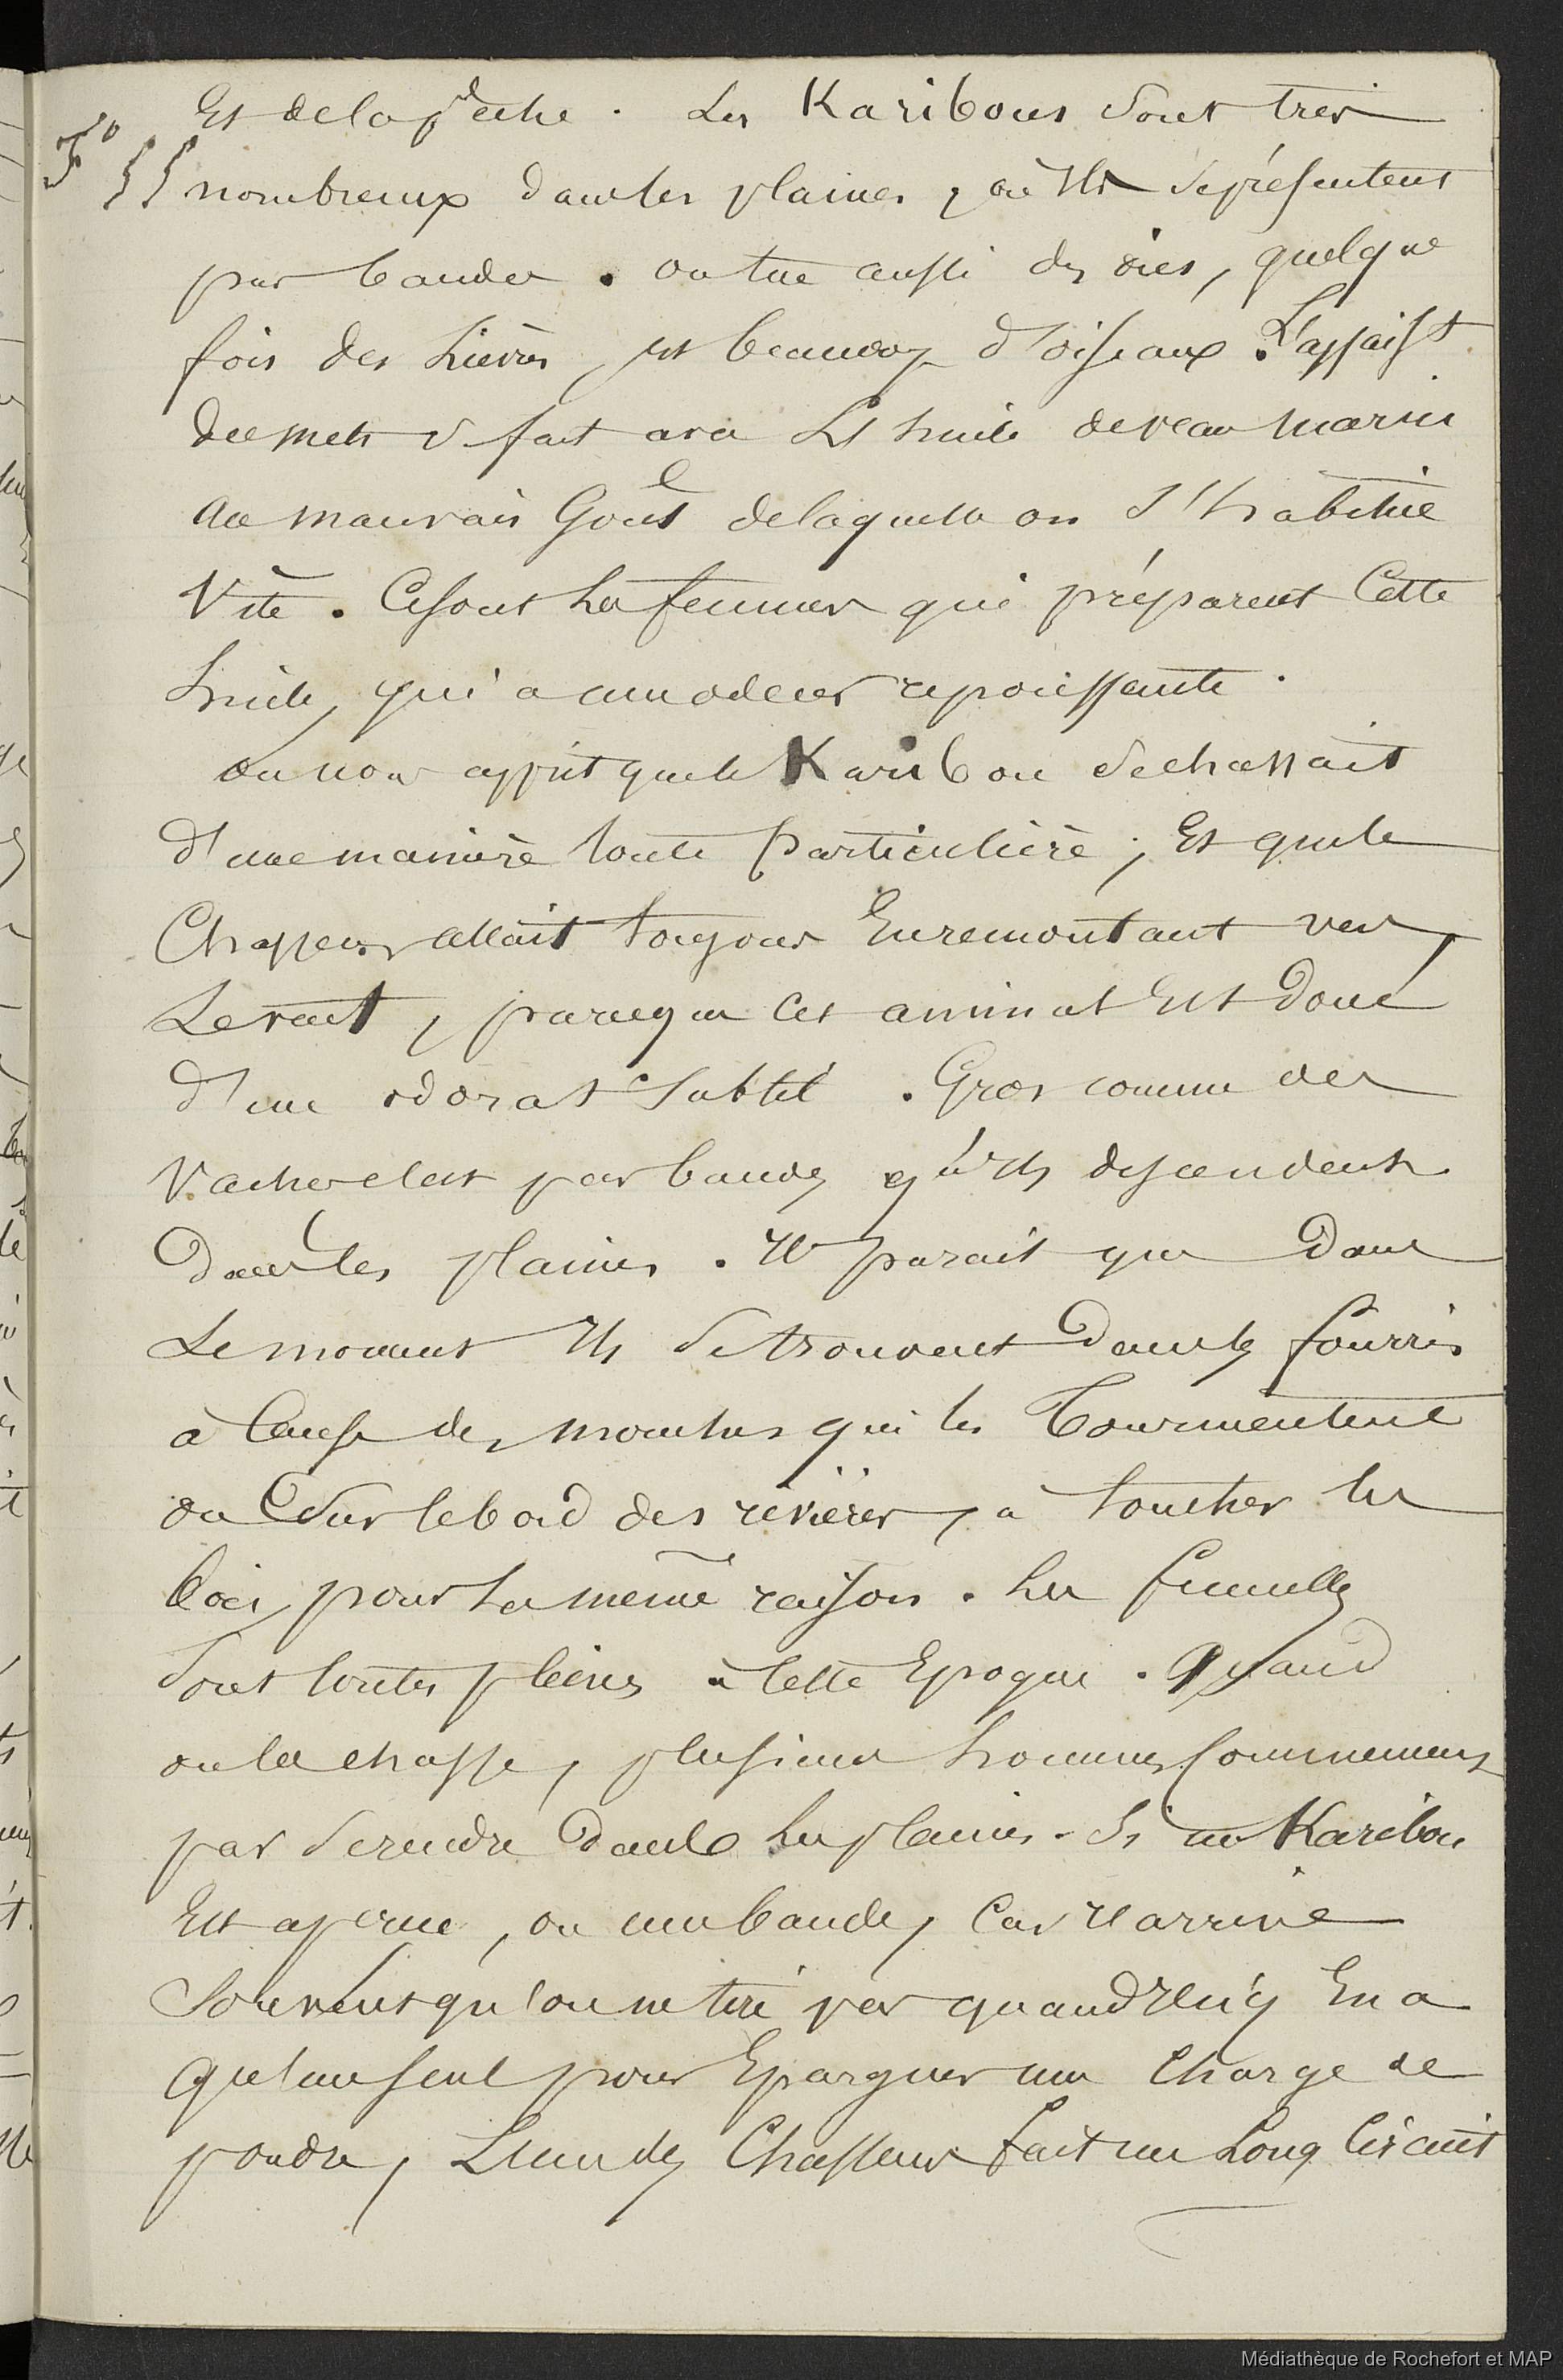 Et de la pêche. Les Karibous sont très
F° 55 nombreux dans les plaines, où Ils se présentent
par bandes. on tue aussi des oies, quelque
fois des Lièvres, et beaucoup d'oiseaux. L'appaist
des mets se fait avec Le huile de veau marin
au mauvais Goût de laquelle on s'habitue
Vite. Ce sont Les femmes qui préparent Cette
huile, qui a une odeur repoussante.
on nous apprit que le Karibou se chassait
d'une manière toute particulière ; Et que le
Chasseur allait toujours En remontant vers
Le vent, parceque Cet animal Est doué
d'une odorat subtil. Gros comme des
Vaches c'est par bandes qu'Ils descendent
Dans les plaines. Il parait que Dans
Le moment Ils se trouvent Dans les fourrés
à Cause des mouches qui les Tourmentent
ou Sur le bord des rivières, à toucher les
bois, pour La même raison. Les femelles
Sont toutes pleines à Cette Epoque. Quand
on les chasse, plusieurs hommes Commencent
par se rendre Dans Les plaines. Si un Karibou
Est aperçu, ou une bande, Car Il arrive
Souvent qu'on ne tire pas quand Il n'y En a
qu'un seul pour Epargner une Charge de
poudre, L'un des Chasseurs fait un Long Circuit
Médiathèque de Rochefort et MAP